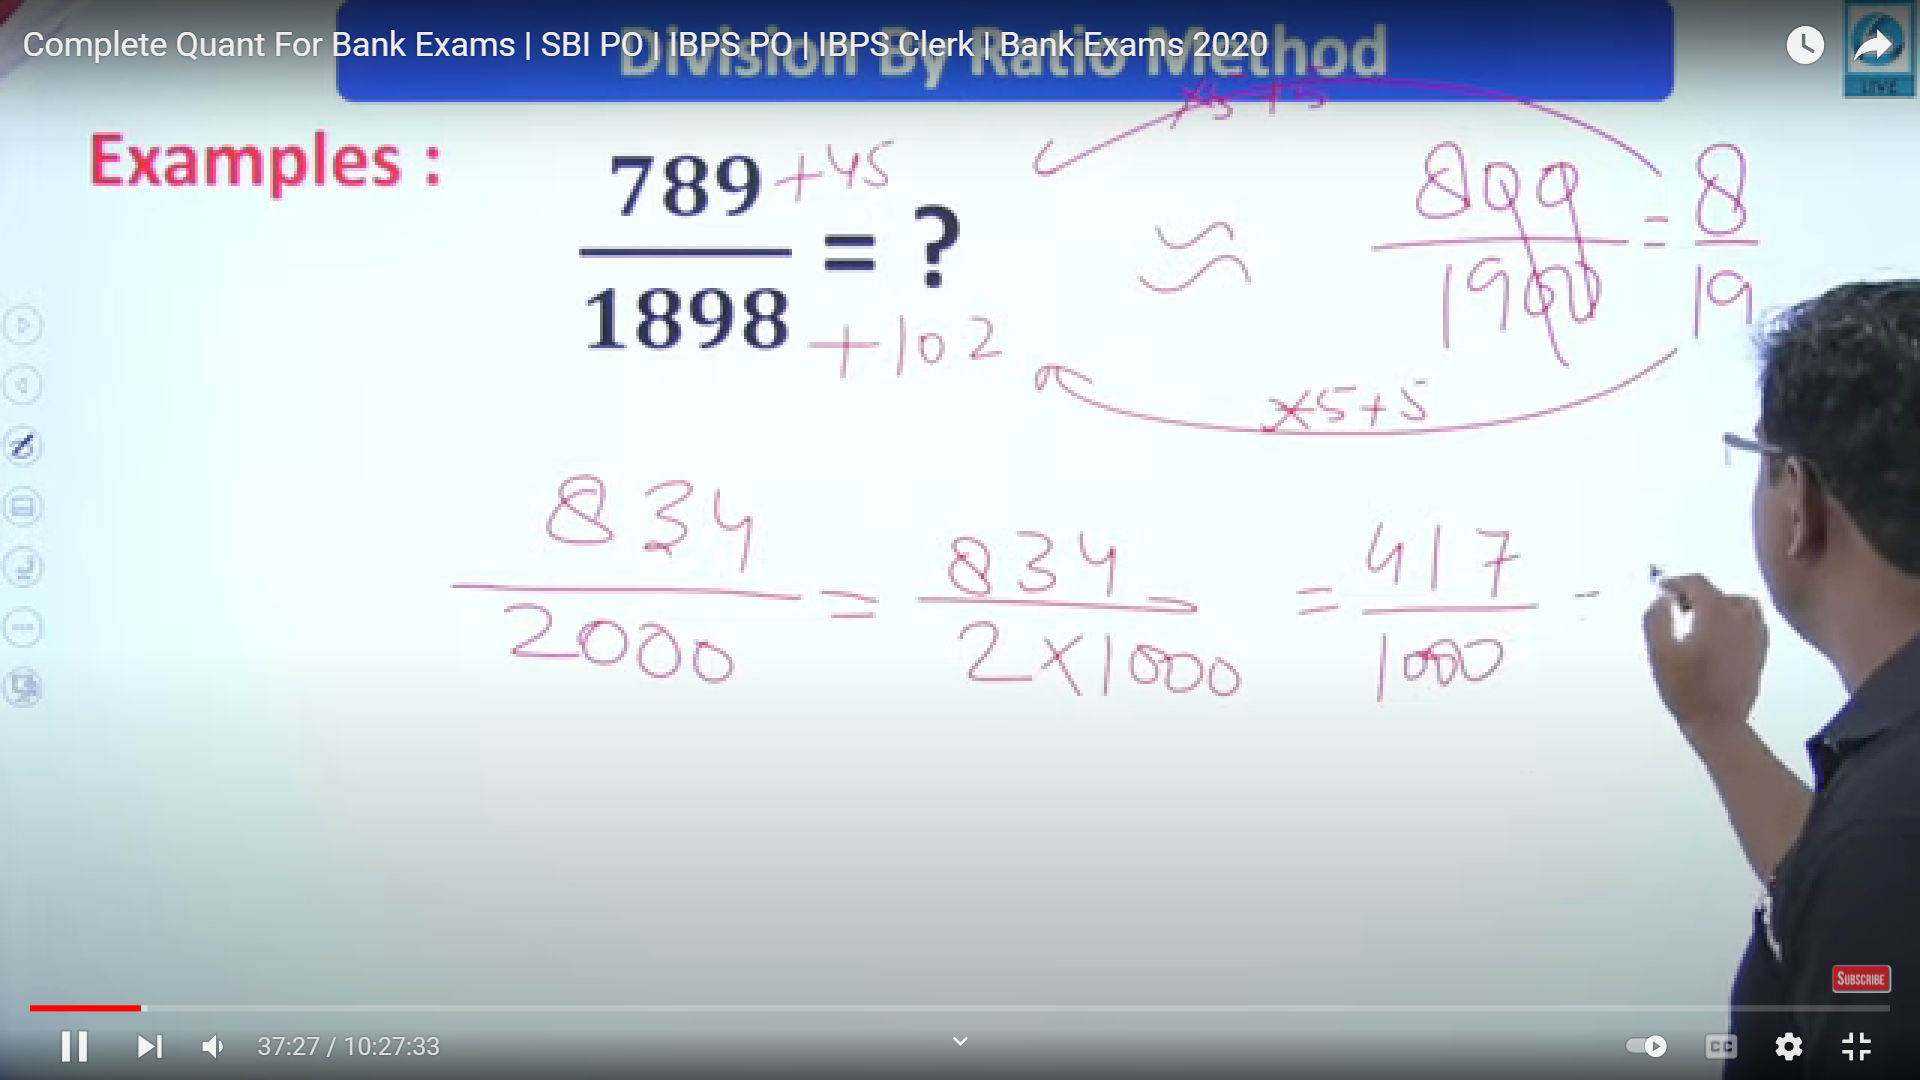 Complete Quant For Bank Exams | SBI PO | IBPS PO | IBPS Clerk | Bank Exams 2020
Division By Ratio Method
LIVE
Examples :
789 +45
1898 +102
= ?
×5+5
≈
800
1900
=
8
19
×5+5
834
2000
=
834
2×1000
=
417
1000
=
SUBSCRIBE
37:27 / 10:27:33
CC